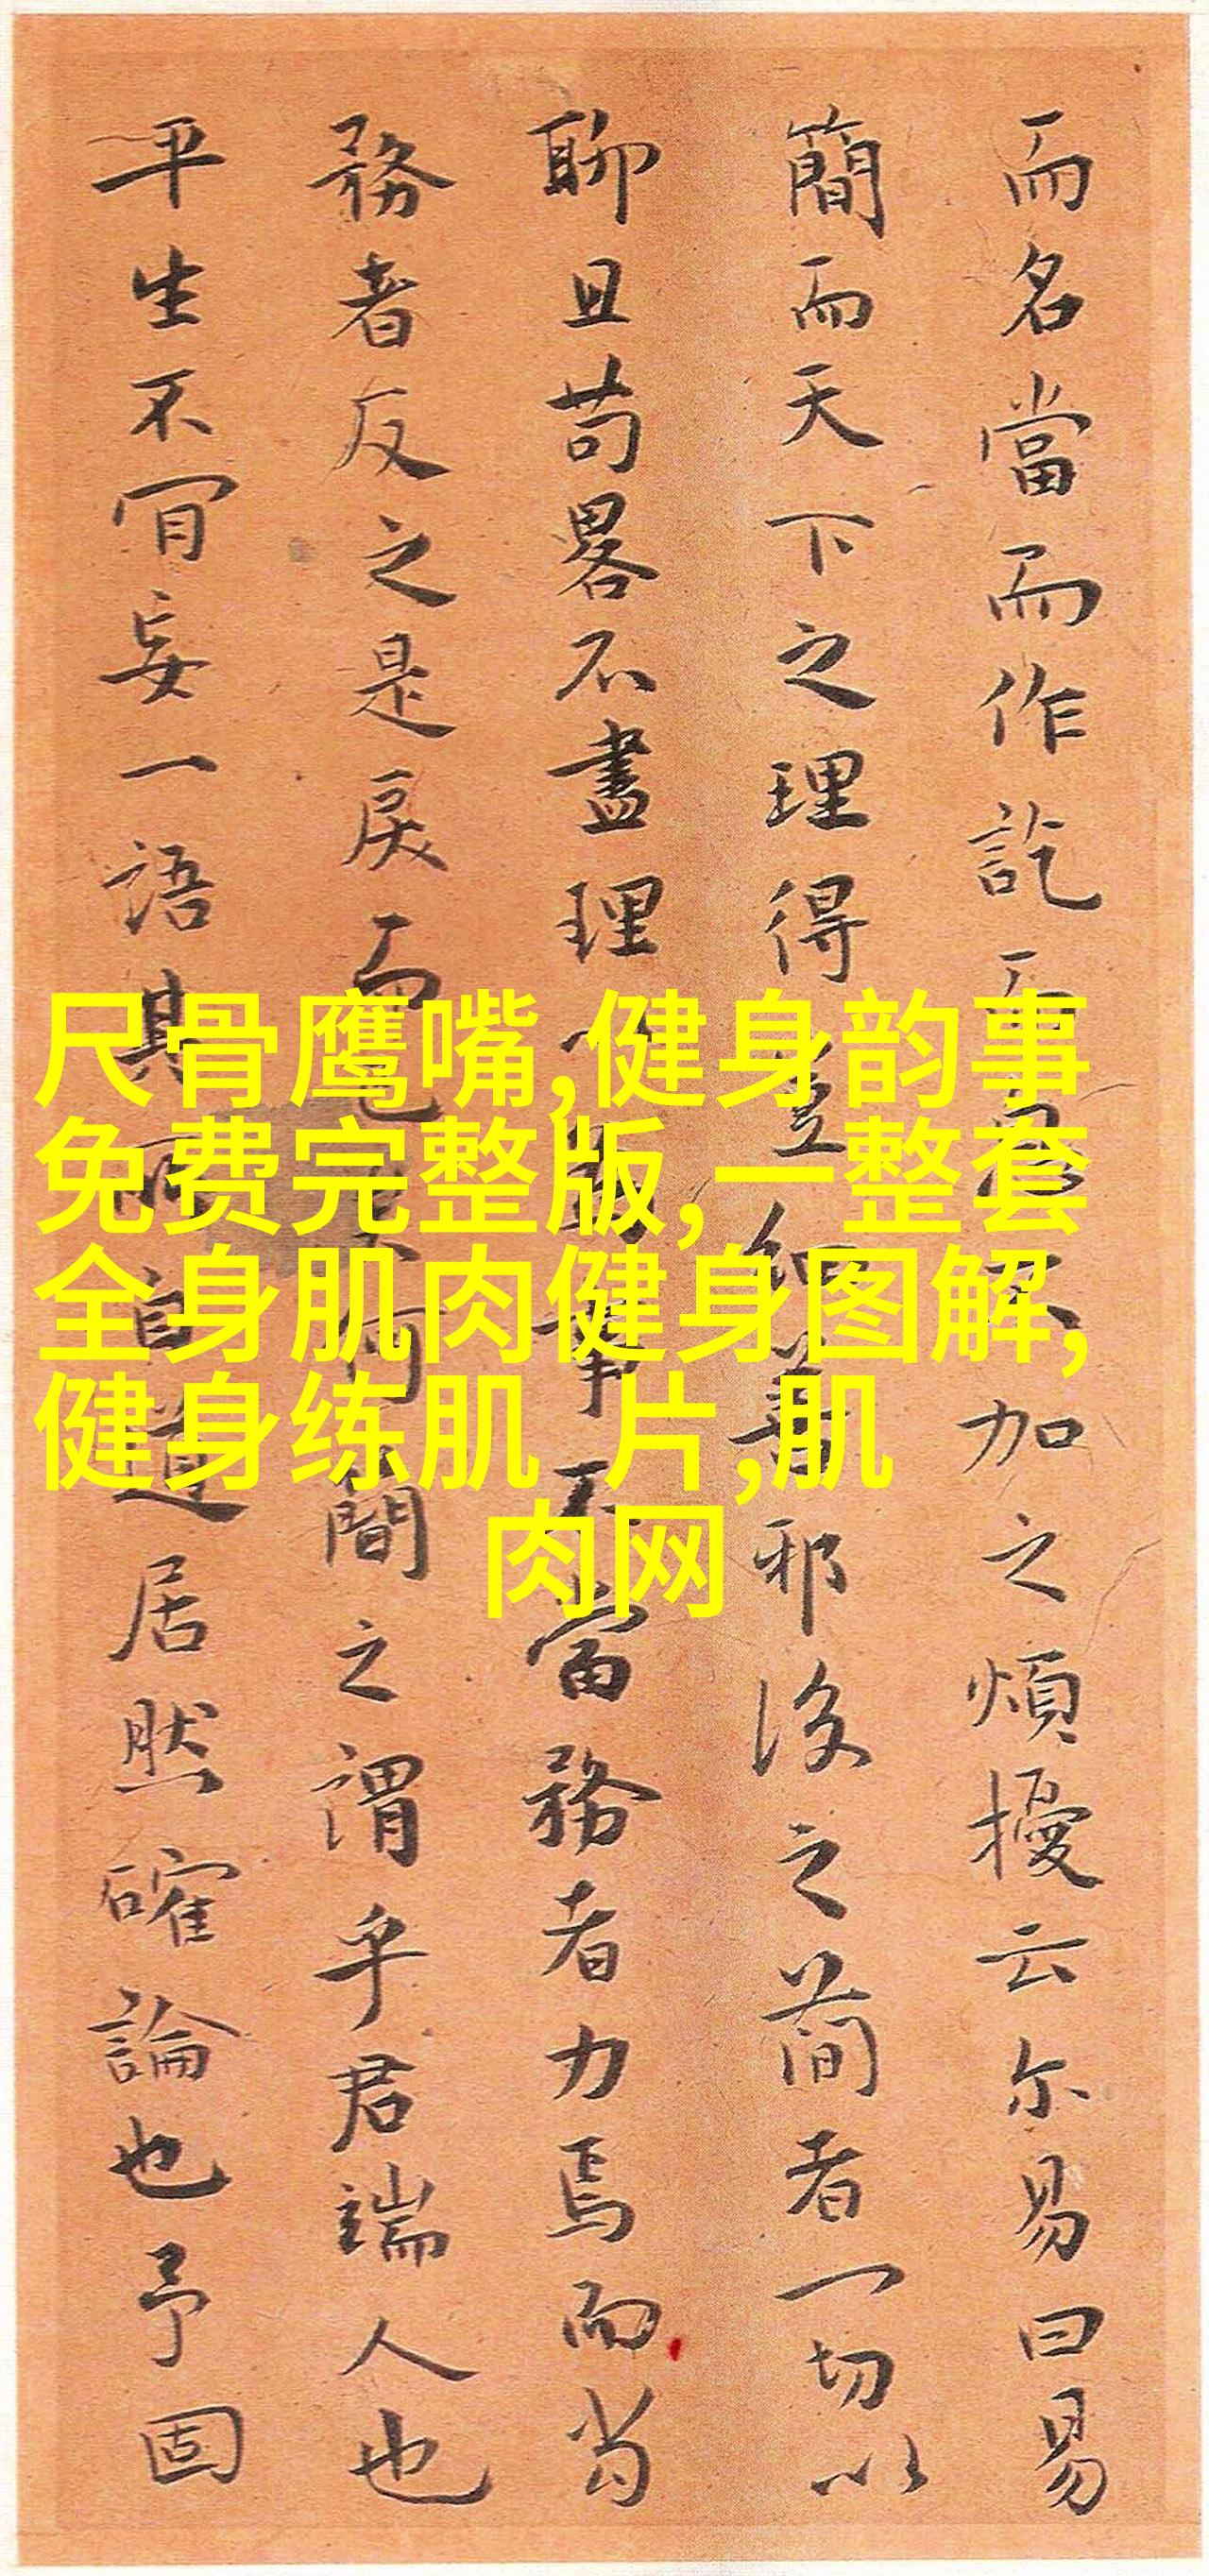 而名當而作訖加之煩擾云尔易曰易
簡而天下之理得豈邪後之簡者一切以
聊且苟畧不盡理事不當務者力焉而當
務者反之是戾而已何簡之謂乎君端人也
平生不肎妄一語其所自道居然確論也予固
尺骨鹰嘴,健身韵事
免费完整版,一整套
全身肌肉健身图解,
健身练肌 片,肌
肉网